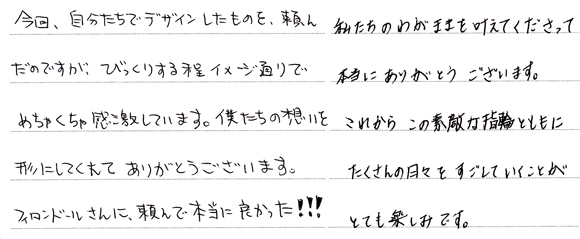 今回、自分たちでデザインしたものを、頼ん
だのですが、びっくりする程イメージ通りで
めちゃくちゃ感激しています。僕たちの想いを
形にしてくれて ありがとうございます。
フィロンドールさんに、頼んで本当に良かった!!!
私たちのわがままを叶えてくださって
本当に ありがとう ございます。
これから この素敵な指輪とともに
たくさんの日々を すごしていくことが
とても楽しみです。